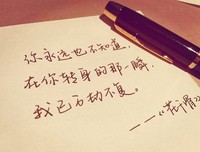 你永远也不知道，
在你转身的那一瞬，
我已万劫不复。
——《花<